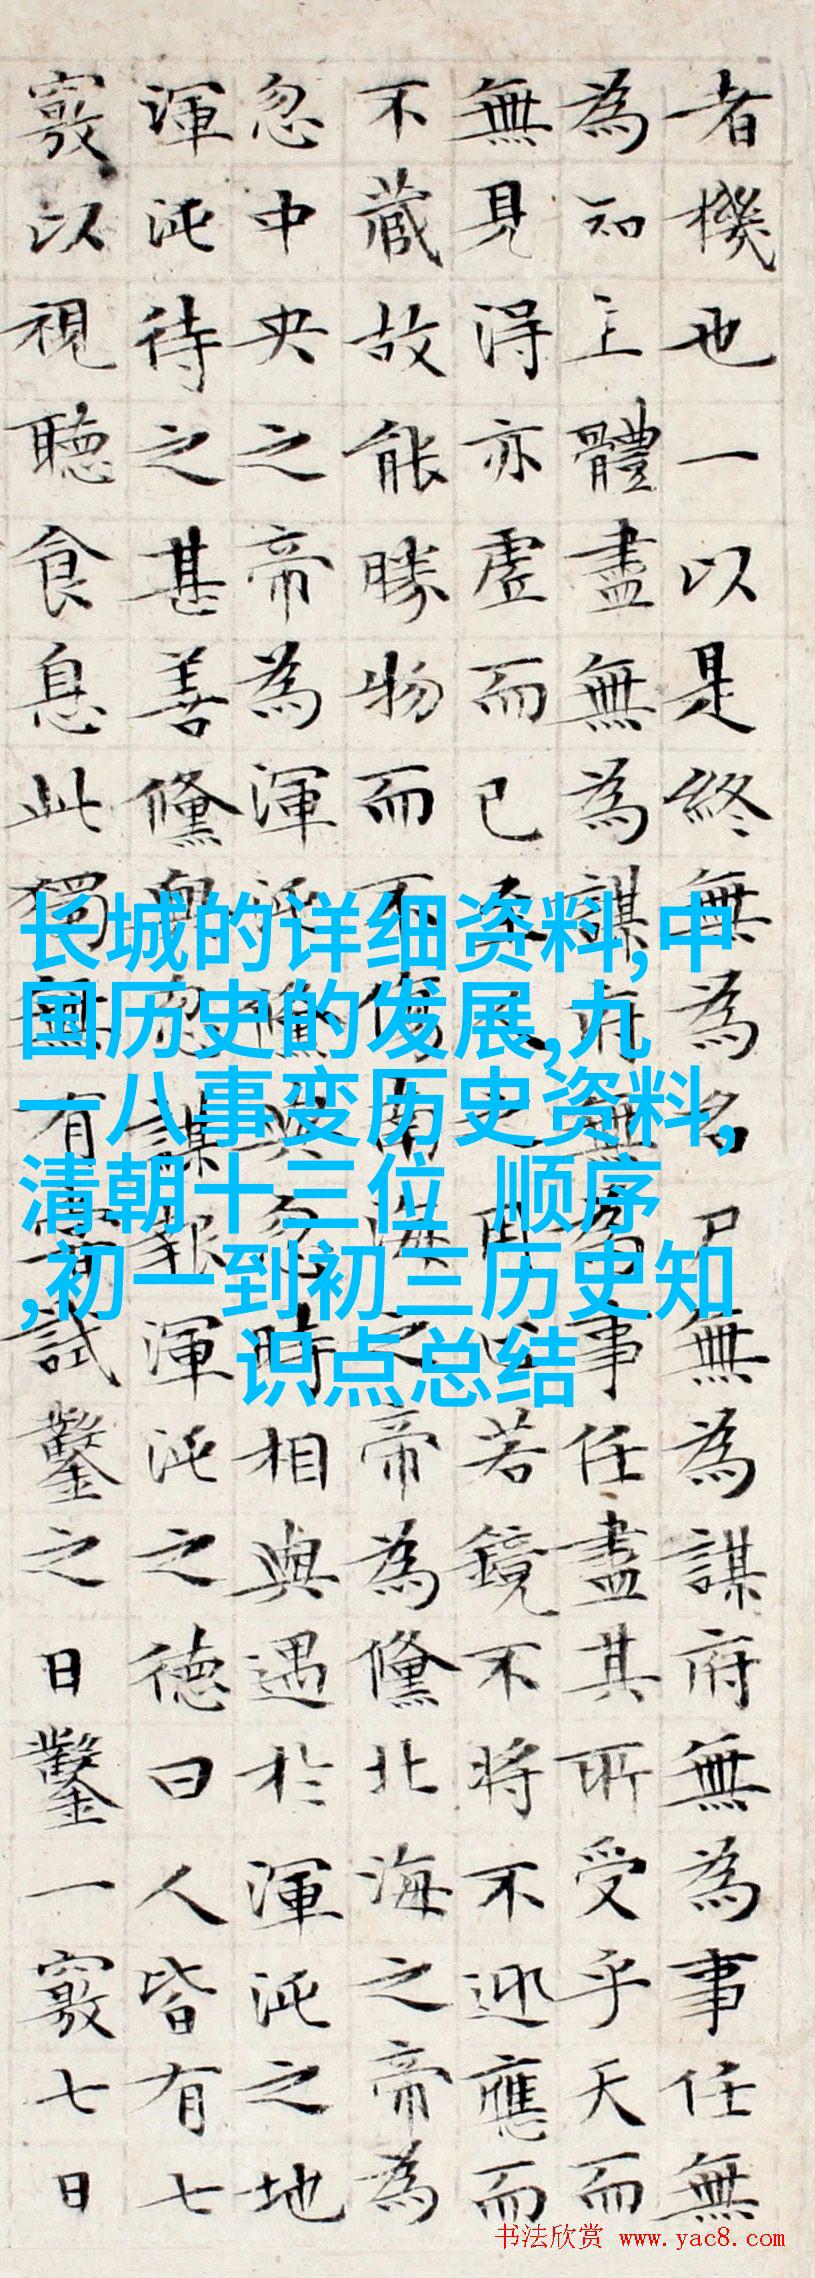 者機也一以是終無為名尸無為謀府無為事任無
為知主體盡無為謀府無為事任盡其所受乎天而
無見得亦虛而已至人之用心若鏡不將不迎應而
不藏故能勝物而不傷南海之帝為儵北海之帝為
忽中央之帝為渾沌儵與忽時相與遇於渾沌之地
渾沌待之甚善儵與忽謀報渾沌之德曰人皆有七
竅以視聽食息此獨無有嘗試鑿之日鑿一竅七日
长城的详细资料,中
国历史的发展,九
一八事变历史资料,
清朝十三位 顺序
,初一到初三历史知
识点总结
书法欣赏 www.yac8.com